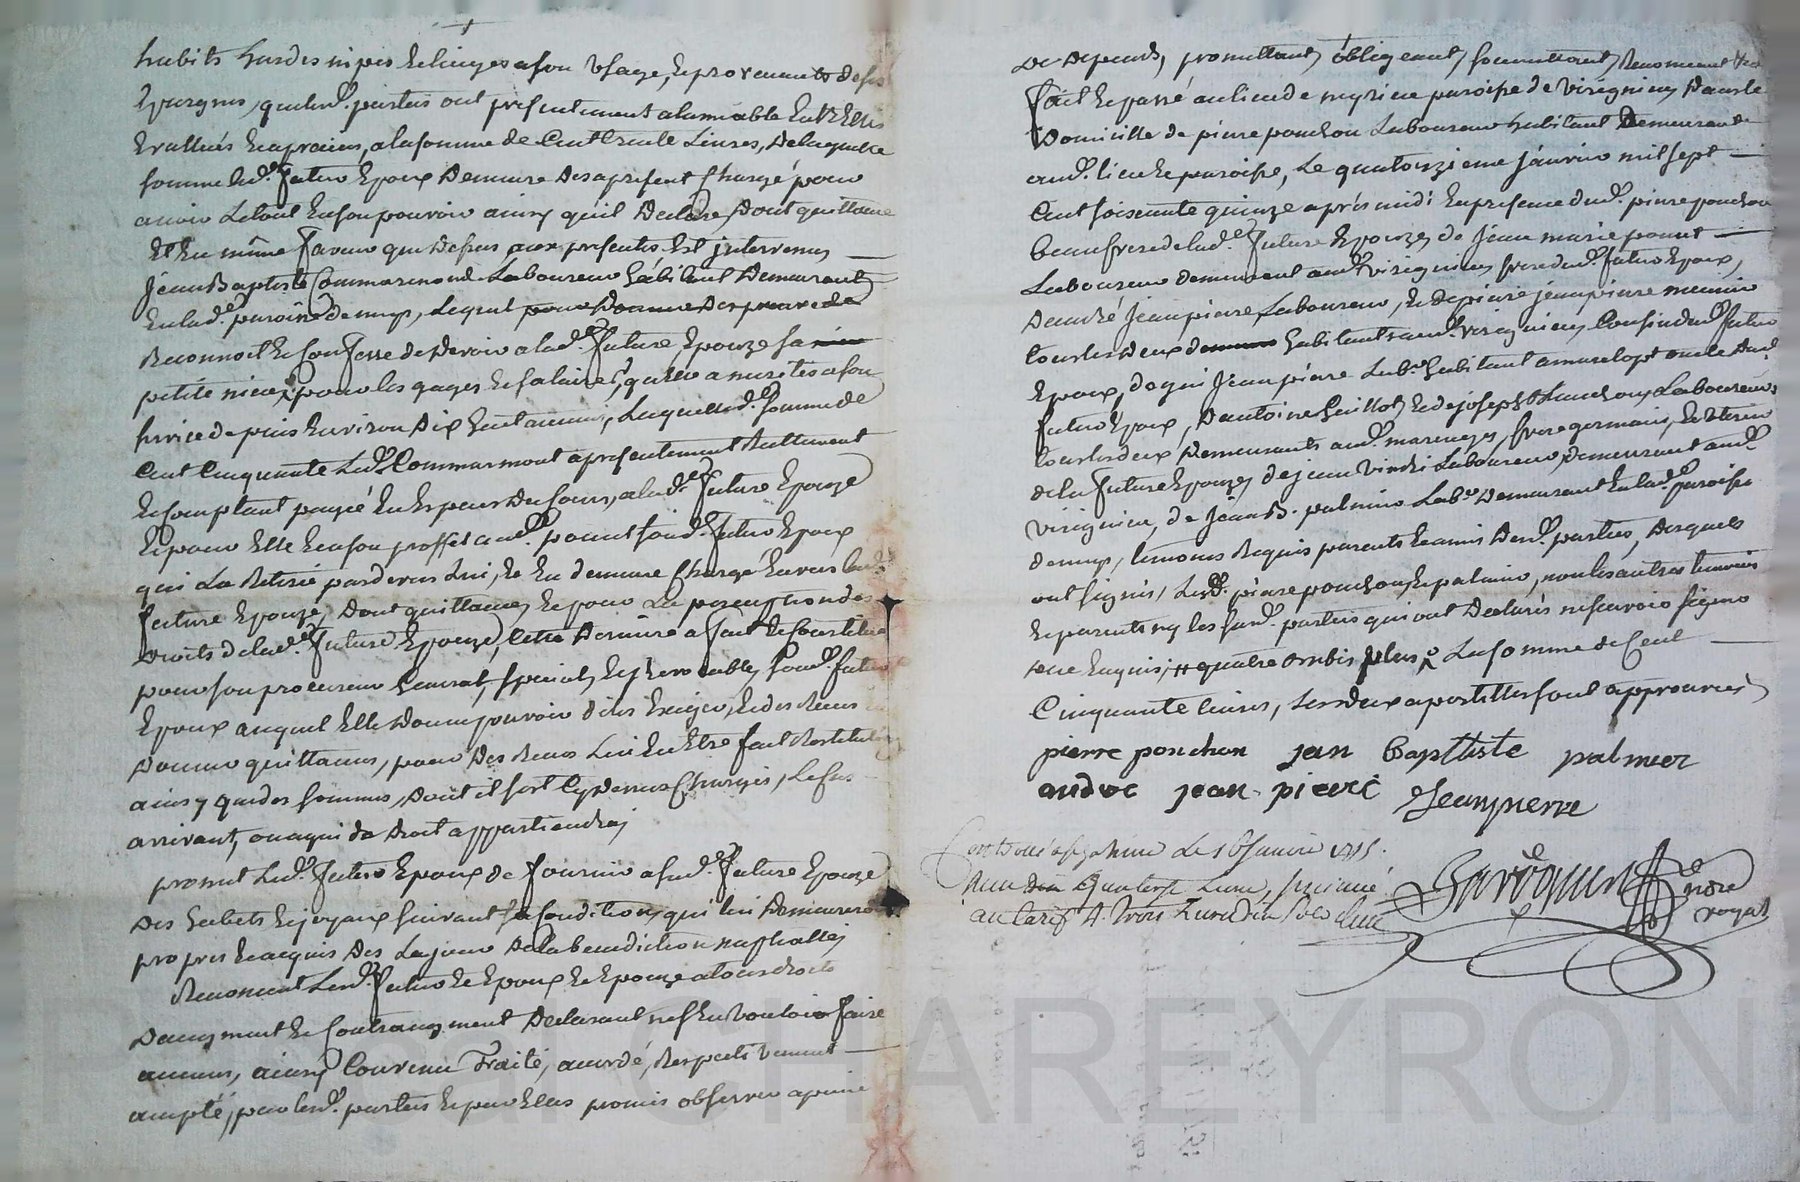 habits hardes nipes et linges a son usage, et provenants de ses
Epargnes, que lesd. parties ont presentement a lamiable Entr'Elles
Evallués et apraciés, a la somme de Cent trente Livres, De laquelle
somme led. futur Epoux Demeure Des apresent Chargé pour
avoir Letout En son pouvoir ainsy quil Declare, Dont quittance
Et En même faveur que Dessus aux presentes Est intervenu
Jean Baptiste Commarmond Laboureur habitant Demeurant
En lad. paroisse de mys, Lequel
Reconnoit Et Confesse de Devoir a lad. future Epouze sa
petite niece, pour les gages Et salaires, quelle a merités a son
service depuis Environ Dix huit années, Laquelle d. somme de
Cent Cinquante L. led. Commarmont a presentement Reellement
Et Comptant payée En Especes De Cours, a lad. future Epouze
Et pour Elle Et a son proffit aud. ponnet sond. futur Epoux
qui La Retirée pardevers Lui, Et En demeure Chargé Envers lad.
future Epouze, Dont quittance, Et pour La perception des
Droits de lad. future Epouze, Cette Derniere a fait Et Constitué
pour son procureur General, special, Et jrrevocable, sond. futur
Epoux auquel Elle Donne pouvoir diceux Exiger, Et des Recus
Donner quittances, pour Des Recus Lui En Etre fait Restitution
ainsy que des sommes, Dont il sest Cy Dessus Chargés, Le Cas
arrivant, ou a qui de Droit appartiendra;
promet Led. futur Epoux de fournir a sad. future Epouze
Des habits Et joyaux suivant sa Condition, qui lui Demeureront
propres Et acquis Des Le jour De la benediction nuptialle;
Renoncent Lesd. futurs Epoux Et Epouze a tous droits
Daugment Et Contraugment Declarant n'En vouloir faire
aucuns, ainsy Convenu Traité, accordé, Respectivement
accepté, par lesd. parties Et par Elles promis observer a peine
De Depends, promettant, obligeant, soumettant, Renonceant
fait Et passé au lieu de meyrieu paroisse de virignieu Dans le
Domicille de pierre ponchon Laboureur habitant Demeurant
aud. lieu Et paroisse, Le quatorzieme janvier mil sept
Cent soixante quinze après midi En presence dud. pierre ponchon
beaufrere de lad. future Epouze, de Jean marie ponnet
Laboureur demeurant aud. virignieu frere dud. futur Epoux,
Deandré jeanpierre Laboureur, Et de pierre jeanpierre meunier
tous les deux habitants aud. virignieu, Cousin dud. futur
Epoux, de jeanpierre Lab. habitant a marclopt oncle Dud.
futur Epoux, Dantoine Guillot, Et de joseph Luchon, Laboureurs
tous les deux Demeurants aud. marenges, frere germain, Et Uterin
de la future Epouze, de jean Vindri Laboureur, demeurant aud.
virignieu, de Jean B. palmier Lab. Demeurant En lad. paroisse
de mys, temoins Requis parents Et amis Desd. parties, Desquels
ont signés, Lesd. pierre ponchon, Et palmier, non les autres temoins
Et parents ny les sus d. parties qui ont Declarés ne scavoir signer
de ce Enquis; # quatre mots plus # La somme de Cent
Cinquante livres, Les deux apostilles sont approuvées
pierre ponchon jan baptiste palmier
andre jean-pierre Jeanpierre
Controllé a le 16 Janvier 1775.
Recu quatorze Livres,
au tarif a trois Livres Dix sols
nore
royal
CHAREYRON